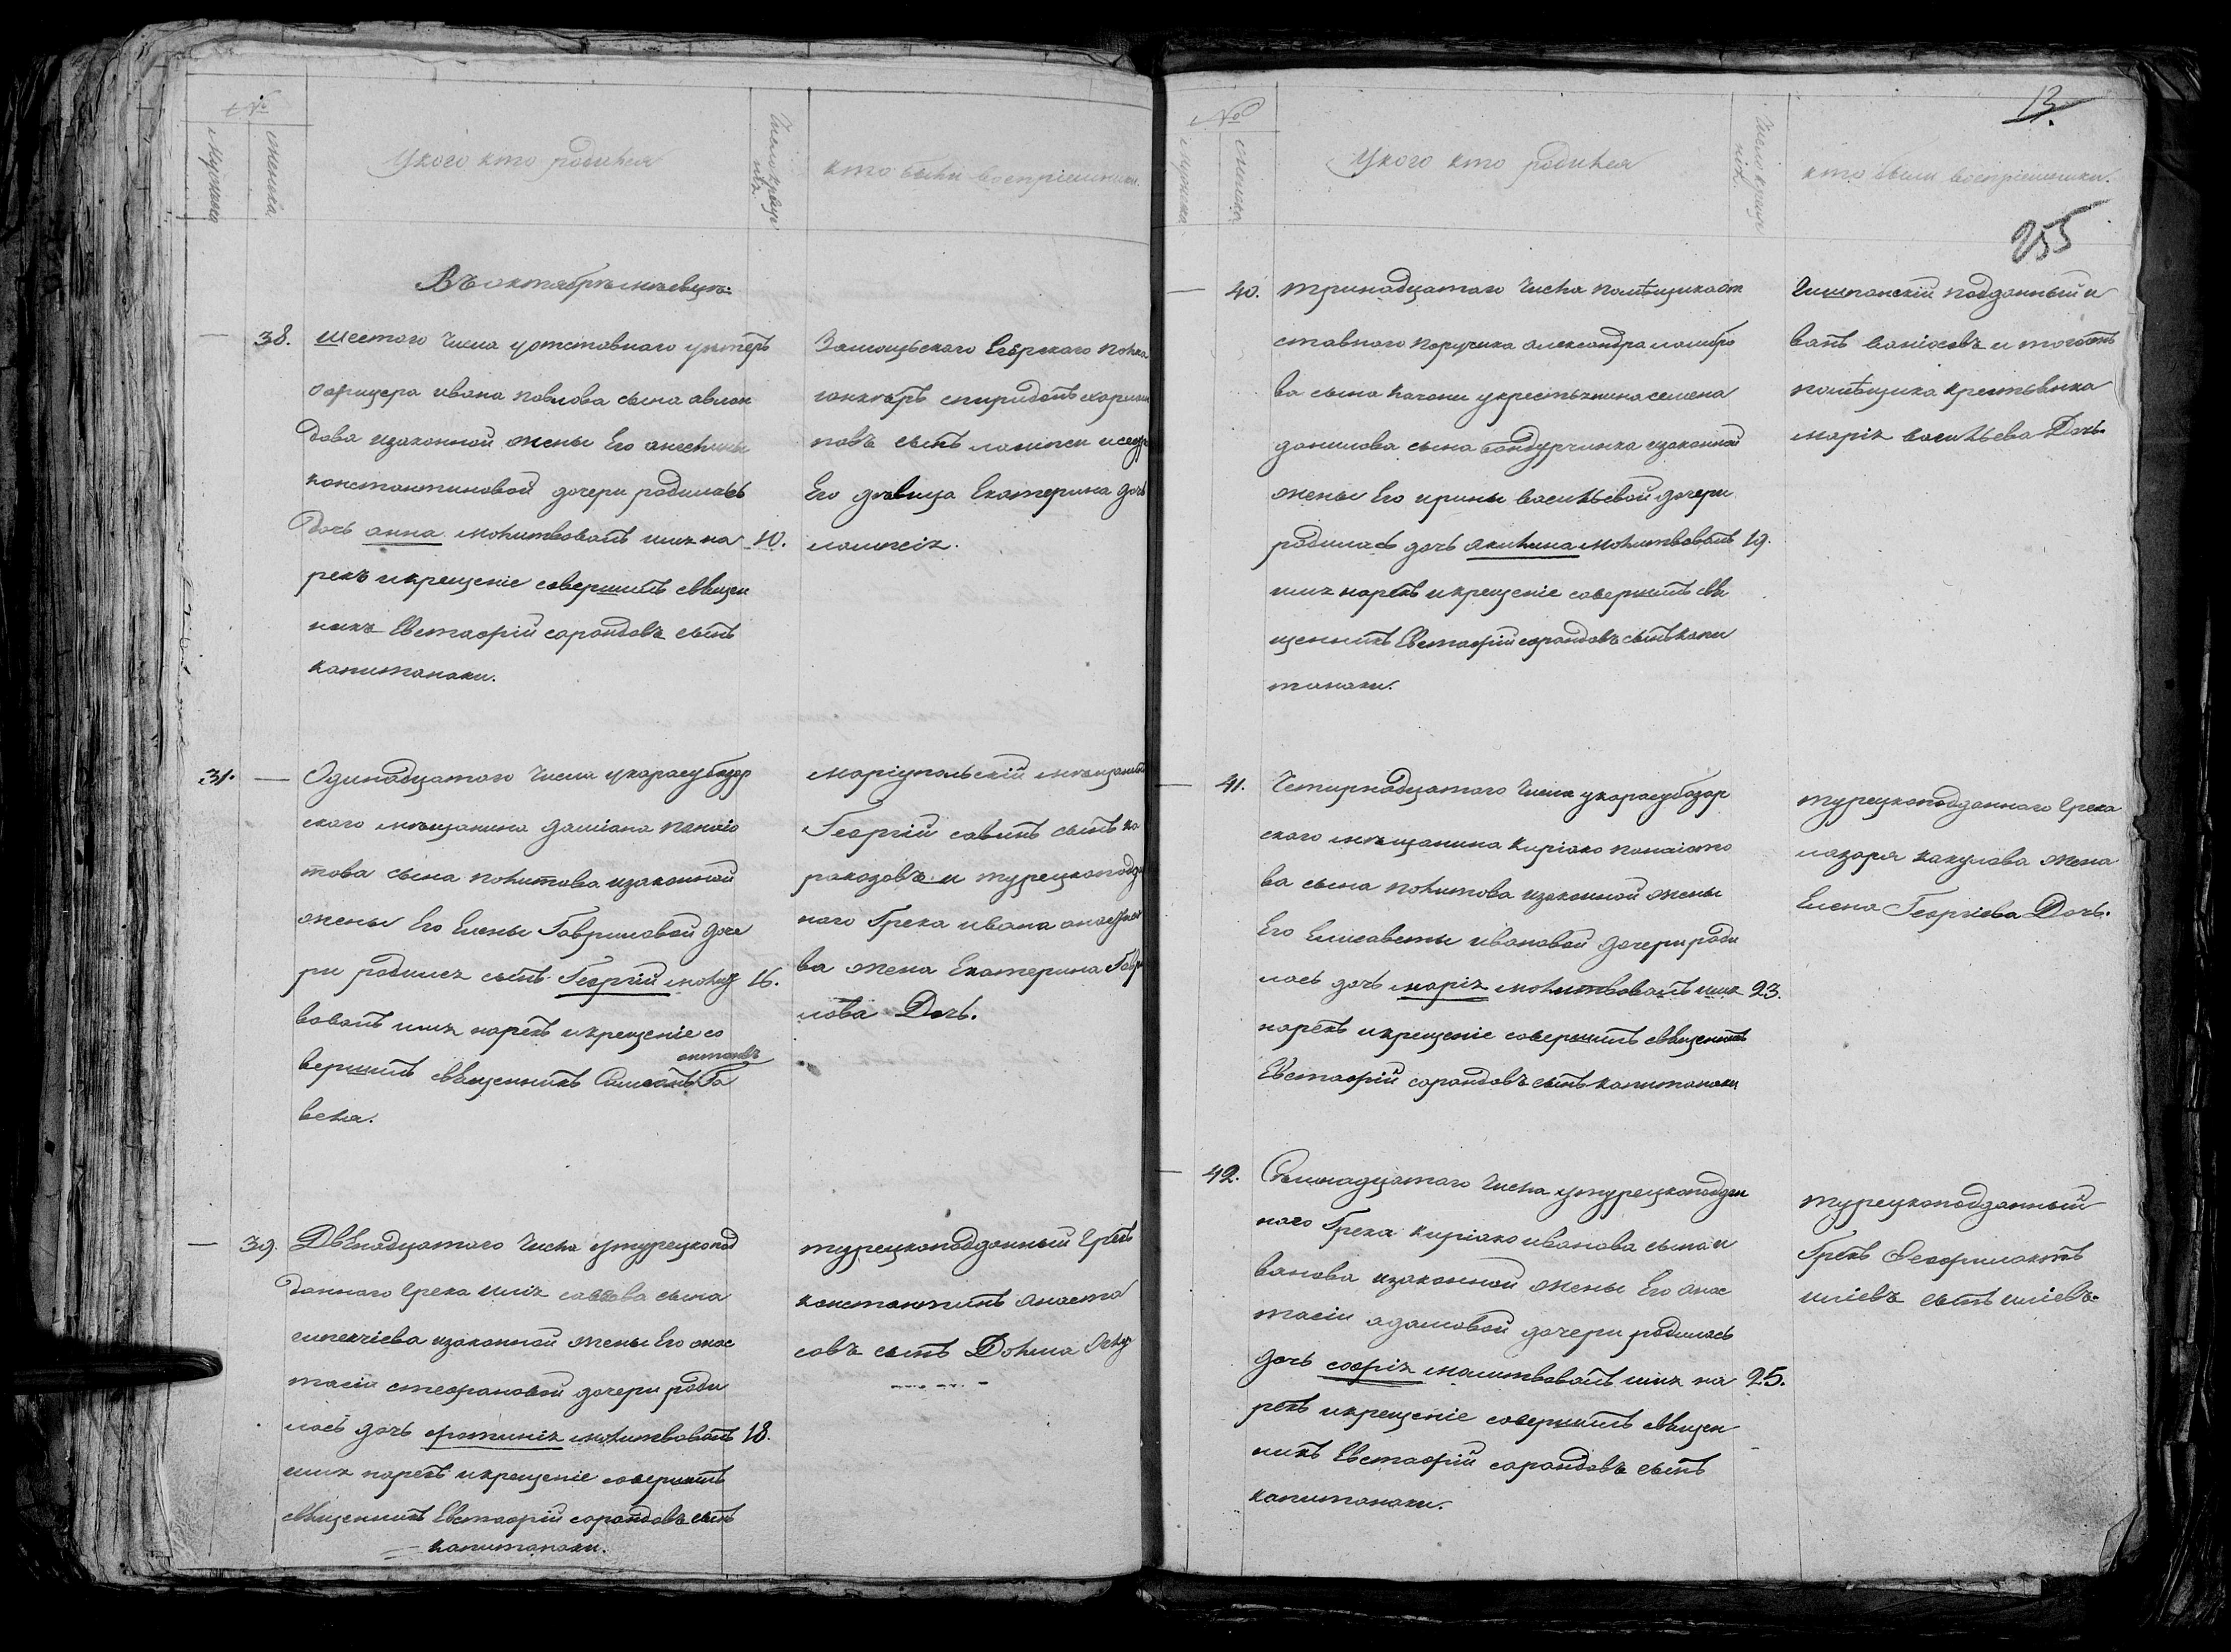 №
Мужска
Женска
У кого кто родился
Число креще
нія
кто были воспріемники.
Въ октябрѣ мѣсяцѣ.
— 38. шестого числа у отставнаго унтеръ
офицера ивана павлова сына авлон
дова изаконной жены Его ангелины
константиновой дочери родилась
дочь анна молитвовалъ имя на 10.
рекъ икрещеніе совершилъ свѧщен
никъ Евстафій сарандовъ сынъ
капитанаки.
Егерского полка
юнкеръ спиридонъ
новъ сынъ лампси и
Его дѣвица Екатерина дочь
лампсія.
31. — Одинадцатого числа укарасубазар
ского мѣщанина даміана панаіо
това сына политова изаконной
жены Его Елены Гавриловой доче
ри родился сынъ Георгій молит 16.
вовалъ имя нарекъ икрещеніе со
вершилъ свѧщенникъ Симеонъ Га
антоновъ
вела.
маріупольскій мѣщанинъ
Георгій савинъ сынъ ка
ракозовъ и турецкоподда
наго Грека ивана
ва жена Екатерина Гаври
лова Дочь.
— 39. Двѣнадцатого числа утурецкопод
даннаго грека илія саввова сына
изаконной жены Его анас
тасіи стефановой дочери роди
лась дочь фотинія молитвовалъ 18.
имя нарекъ икрещеніе совершилъ
свѧщенникъ Евстафій сарандовъ сынъ
капитанаки.
турецкоподданный грекъ
константинъ анаста
совъ сынъ Долма
№
Мужска
Женска
У кого кто родился
Число креще
нія
кто были воспріемники.
13.
255
— 40. тринадцатого числа помѣщика от
ставного поручика александра ламбро
ва сына качони укрестьянина семена
данилова сына бондурчинка изаконной
жены Его ирины васильевой дочери
родилась дочь акилина молитвовалъ 19.
имя нарекъ икрещеніе совершилъ свѧ
щенникъ Евстафій сарандовъ сынъ капи
танаки.
Гишпанскій подданный и
ванъ и тогожъ
помѣщика крестьянка
марія васильева Дочь.
— 41. Четирнадцатого числа укарасубазар
ского мѣщанина киріако панаіото
ва сына политова изаконной жены
Его Елисаветы ивановой дочери роди
лась дочь марія молитвовалъ имя 23.
нарекъ икрещеніе совершилъ свѧщенникъ
Евстафій сарандовъ сынъ капитанаки
турецкоподданного грека
лазаря какулова жена
Елена Георгіева Дочь.
— 42. Семнадцатого числа утурецкоподдан
ного Грека киріако иванова сына и
ванова изаконной жены Его анас
тасіи адамовой дочери родилась
дочь софія малитвовалъ имя на 25.
рекъ икрещеніе совершилъ свѧщен
никъ Евстафій сарандовъ сынъ
капитанаки.
турецкоподданный
Грекъ Феофилактъ
иліевъ сынъ иліевъ.